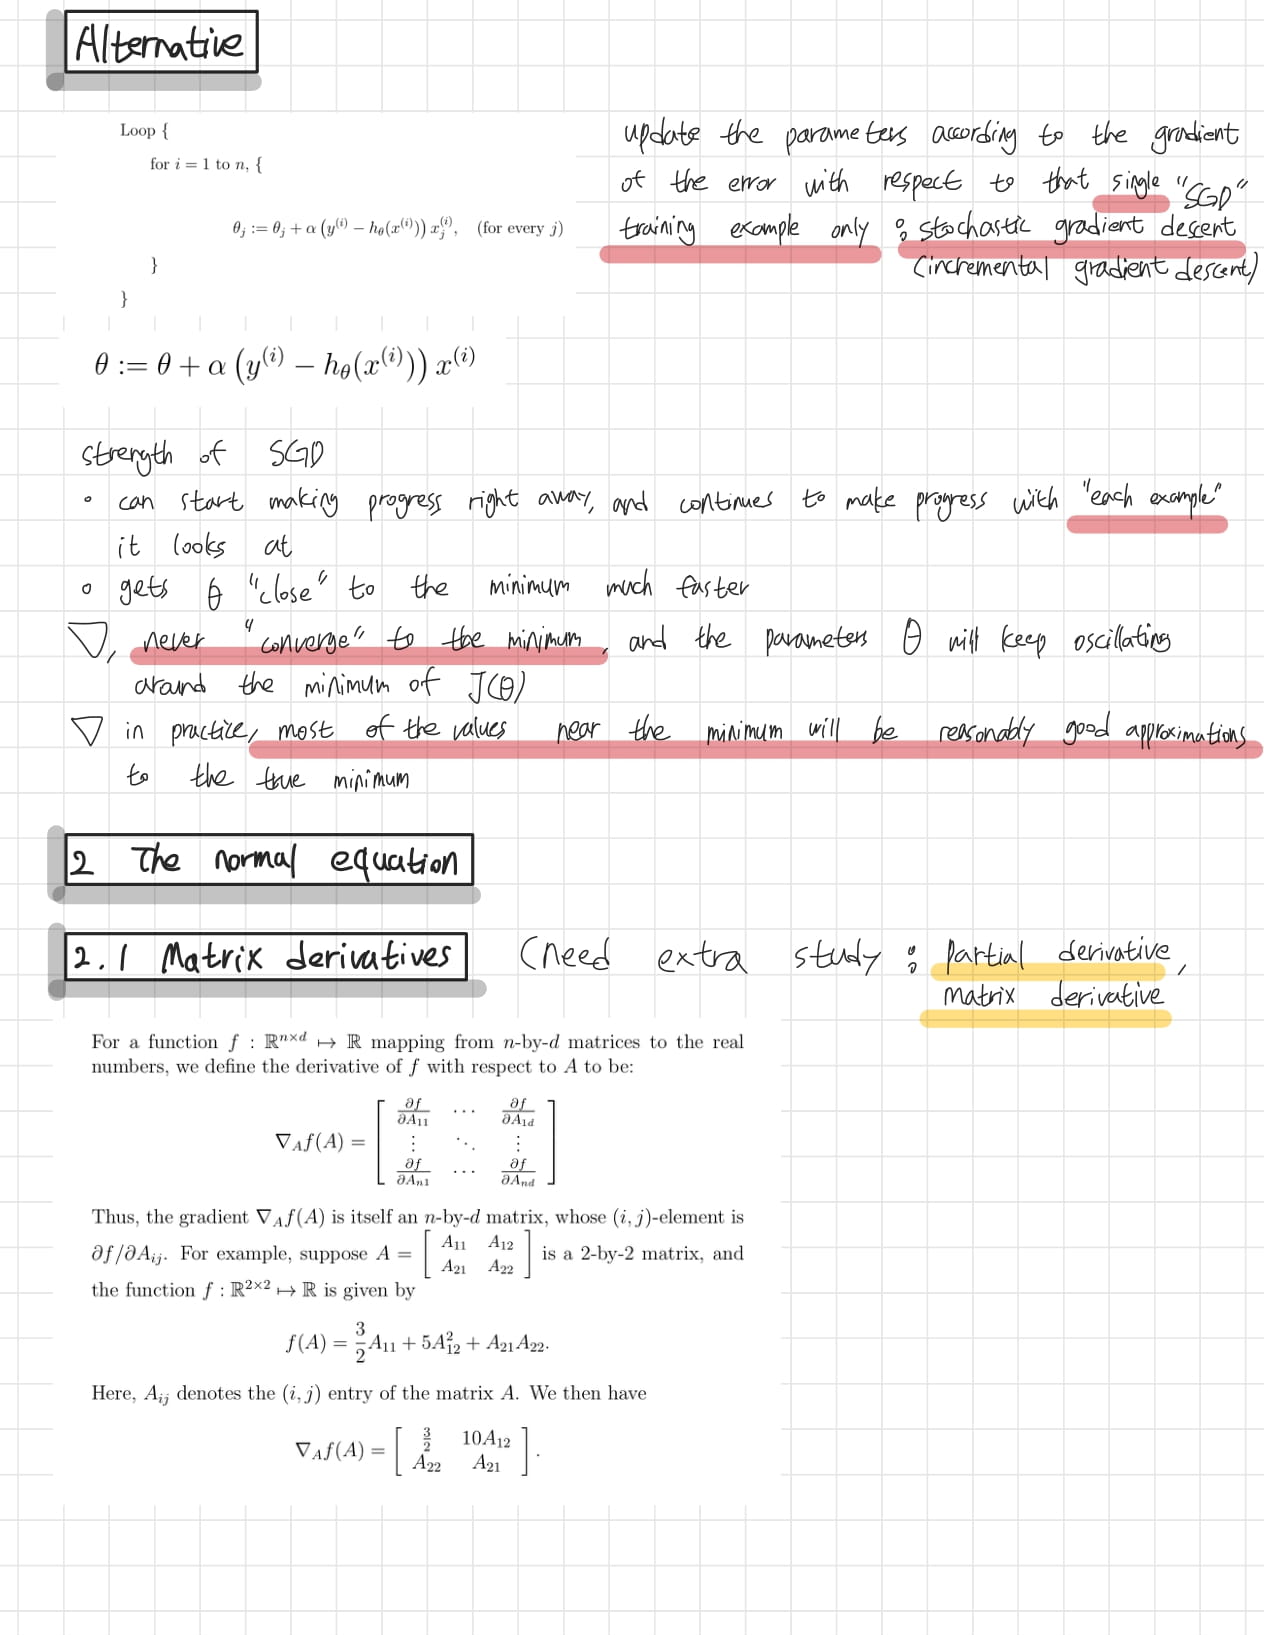 Alternative
Loop {
for i = 1 to n, {
θ_j := θ_j + α (y^(i) − h_θ(x^(i))) x_j^(i), (for every j)
}
}
update the parameters according to the gradient
of the error with respect to that single "SGD"
training example only : stochastic gradient descent
(incremental gradient descent)
θ := θ + α (y^(i) − h_θ(x^(i))) x^(i)
strength of SGD
• can start making progress right away, and continues to make progress with "each example"
it looks at
• gets θ "close" to the minimum much faster
▽, never "converge" to the minimum, and the parameters θ will keep oscillating
around the minimum of J(θ)
▽ in practice, most of the values near the minimum will be reasonably good approximations
to the true minimum
2 The normal equation
2.1 Matrix derivatives (need extra study : Partial derivative,
Matrix derivative
For a function f : ℝ^{n×d} ↦ ℝ mapping from n-by-d matrices to the real
numbers, we define the derivative of f with respect to A to be:
∇_A f(A) = [ ∂f/∂A_11 ⋯ ∂f/∂A_1d
⋮ ⋱ ⋮
∂f/∂A_n1 ⋯ ∂f/∂A_nd ]
Thus, the gradient ∇_A f(A) is itself an n-by-d matrix, whose (i, j)-element is
∂f/∂A_ij. For example, suppose A = [ A_11 A_12
A_21 A_22 ] is a 2-by-2 matrix, and
the function f : ℝ^{2×2} ↦ ℝ is given by
f(A) = 3/2 A_11 + 5A_12^2 + A_21 A_22.
Here, A_ij denotes the (i, j) entry of the matrix A. We then have
∇_A f(A) = [ 3/2 10A_12
A_22 A_21 ] .